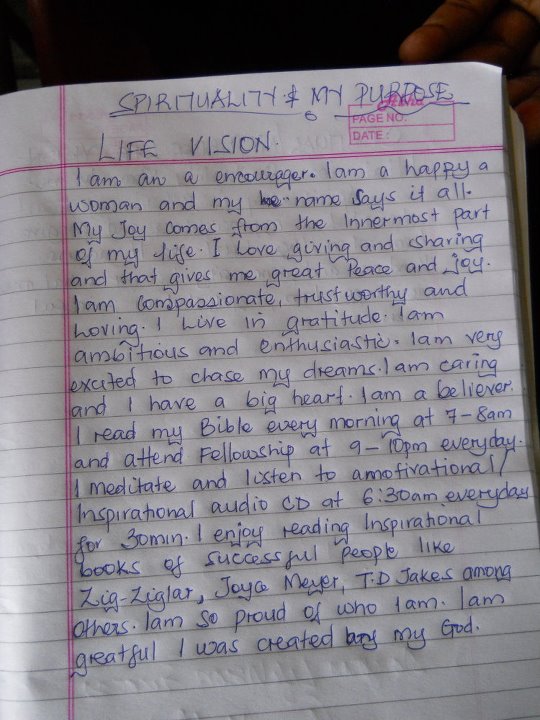 SPIRITUALITY & MY PURPOSE
PAGE NO:
DATE:
LIFE VISION.
I am an a encourager. I am a happy a
woman and my name says it all.
My Joy comes from the Innermost part
of my life. I Love giving and sharing
and that gives me great Peace and joy.
I am compassionate, trustworthy and
Loving. I Live in gratitude. I am
ambitious and enthusiastic. I am very
excited to chase my dreams. I am caring
and I have a big heart. I am a believer.
I read my Bible every morning at 7-8am
and attend Fellowship at 9-10pm everyday.
I meditate and listen to amotivational/
Inspirational audio CD at 6:30am everyday
for 30min. I enjoy reading Inspirational
books of successful people like
Zig-Ziglar, Joyce Meyer, T.D Jakes among
Others. I am so proud of who I am. I am
greatful I was created by my God.